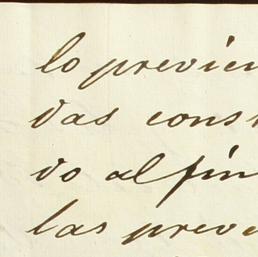 lo previen
das cons
do al fin
las prev